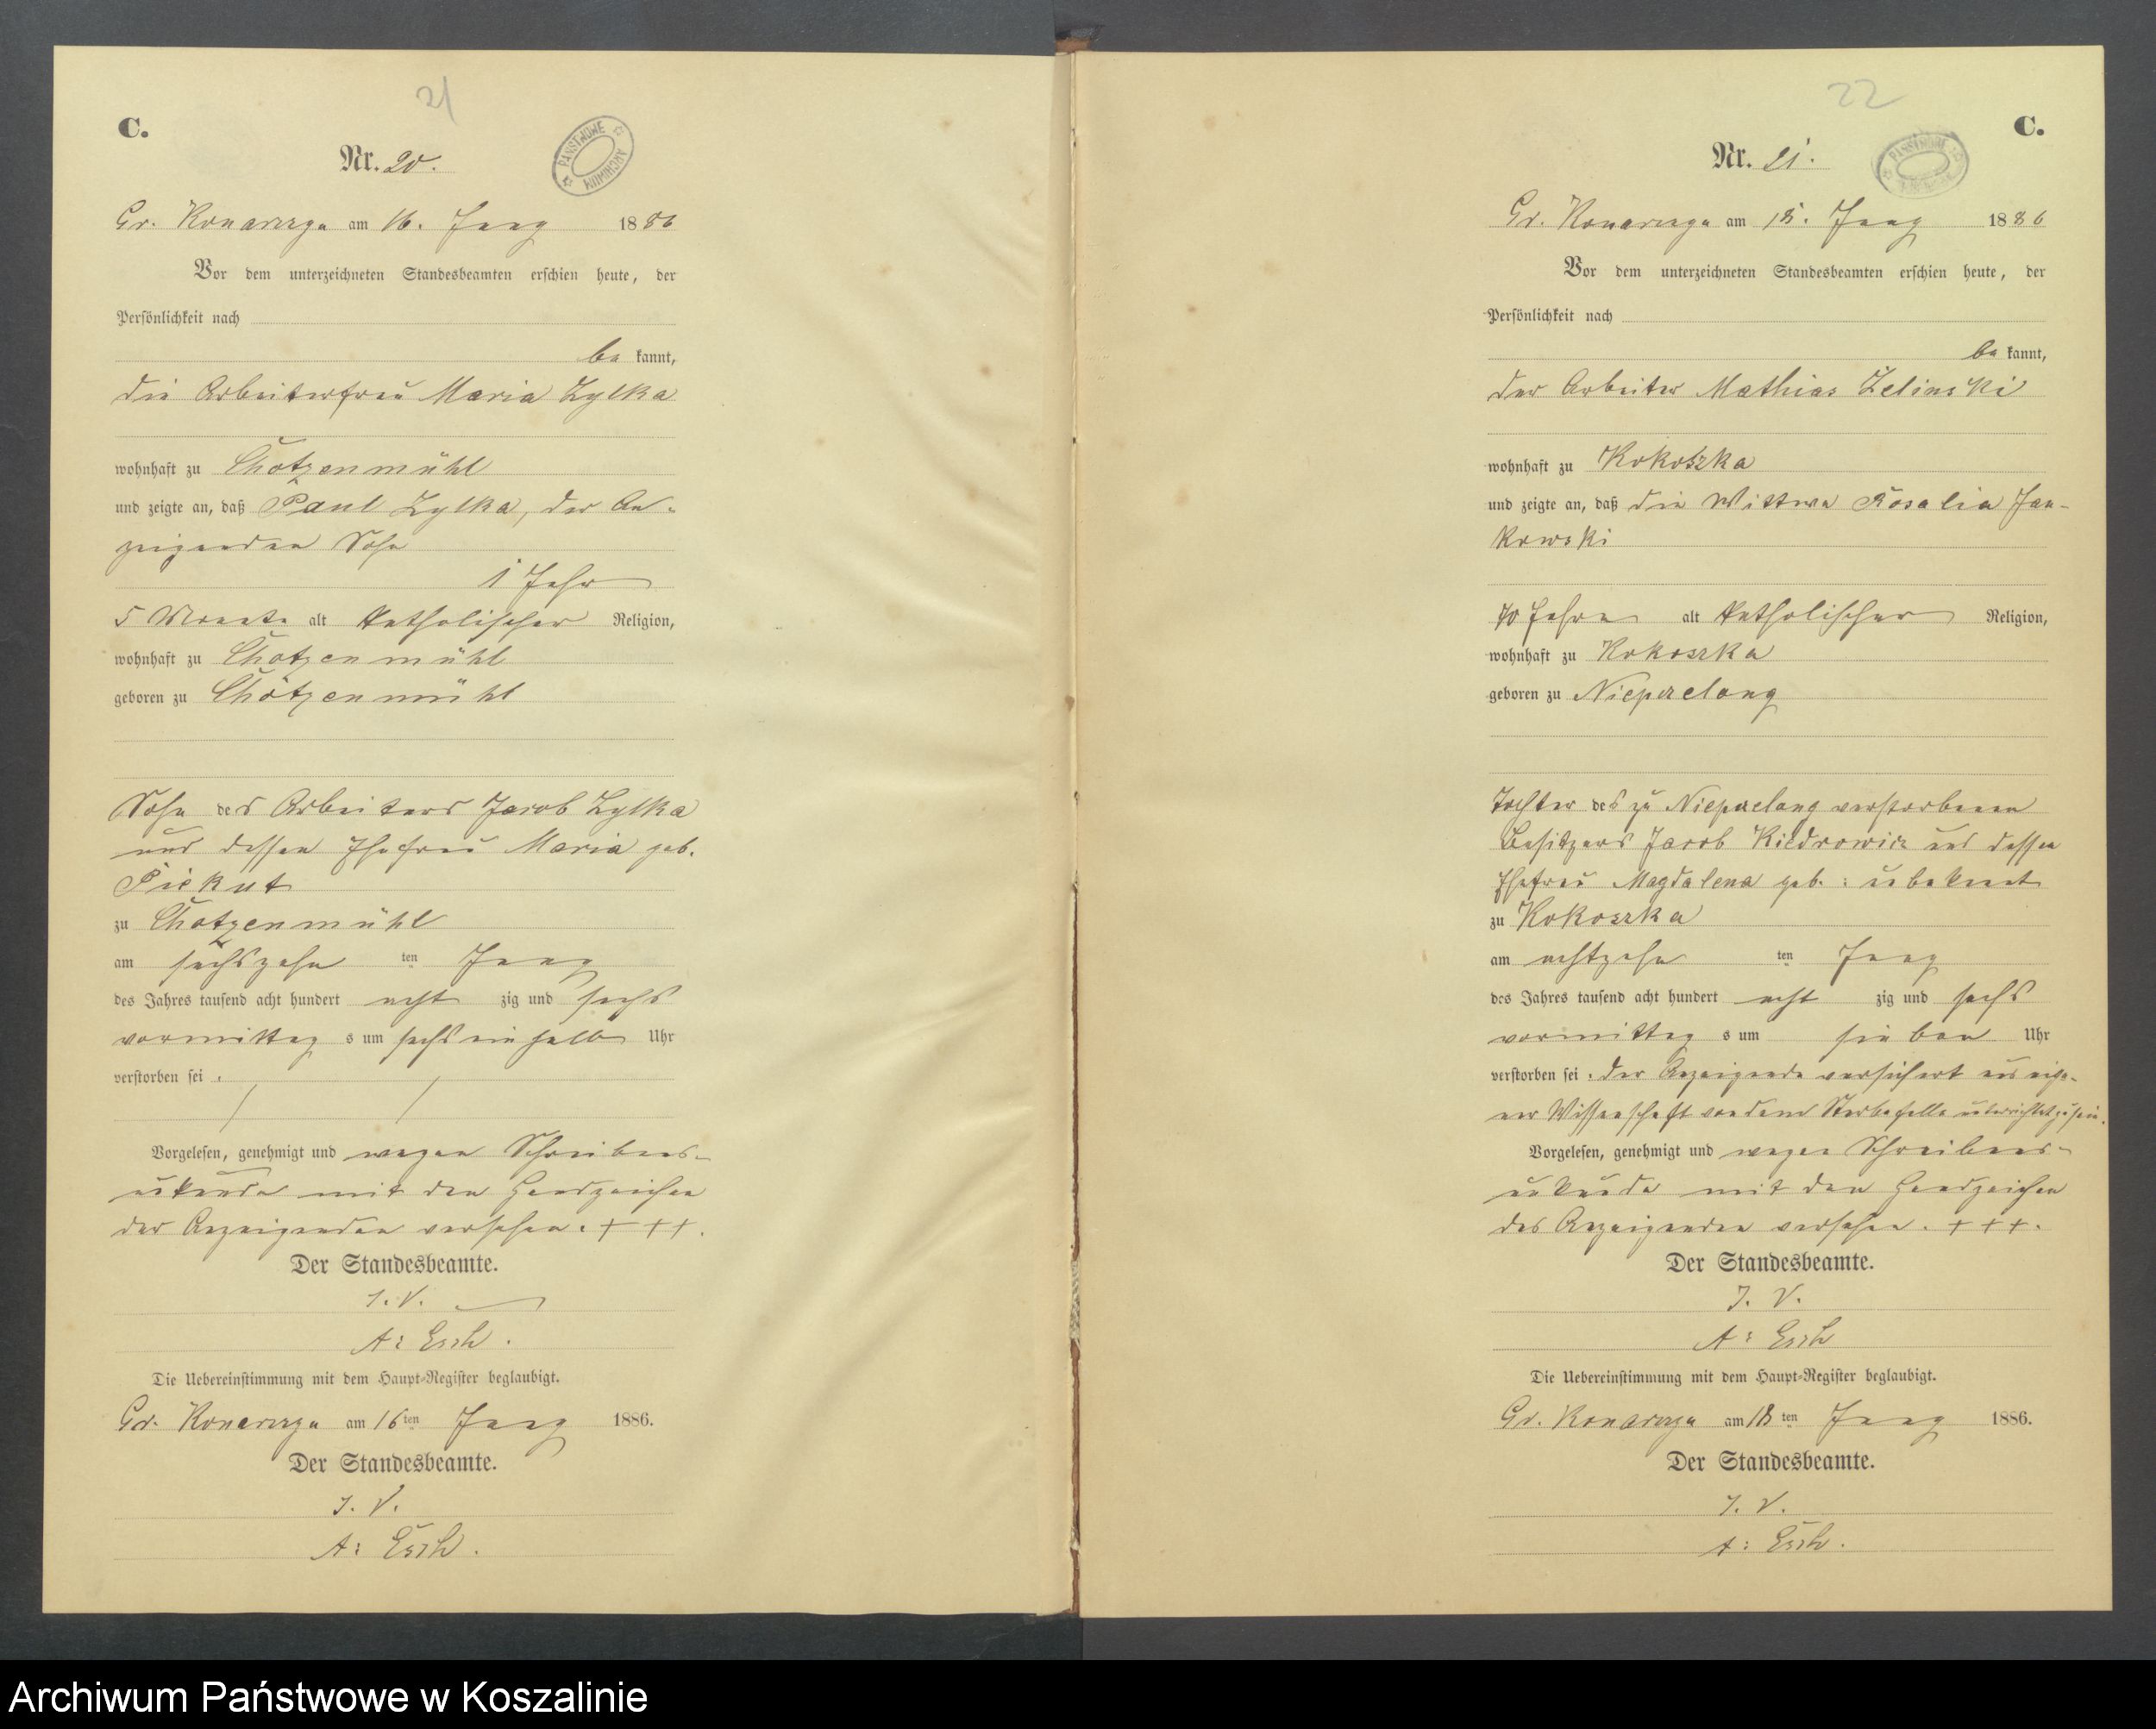 21
C.
PAŃSTWOWE ARCHIWUM
Nr. 20.
Gr. Konarzyn am 16. 1886
Vor dem unterzeichneten Standesbeamten erschien heute, der
Persönlichkeit nach
be kannt,
die Arbeiterfrau Maria Zylka
wohnhaft zu Chotzenmühl
und zeigte an, daß Paul Zylka, der An-
zeigenden Sohn
1 Jahr
5 Monate alt katholischer Religion,
wohnhaft zu Chotzenmühl
geboren zu Chotzenmühl
Sohn des Arbeiters Jacob Zylka
und dessen Ehefrau Maria geb.
Piekut
zu Chotzenmühl
am sechszehn ten
des Jahres tausend acht hundert acht zig und sechs
vormittag s um sechseinhalb Uhr
verstorben sei.
Vorgelesen, genehmigt und wegen Schreibens-
unkunde mit den Handzeichen
der Anzeigenden versehen. +++.
Der Standesbeamte.
J. V.
A:
Die Uebereinstimmung mit dem Haupt-Register beglaubigt.
Gr. Konarzyn am 16ten 1886.
Der Standesbeamte.
J. V.
A:
22
C.
PAŃSTWOWE
Nr. 21.
Gr. Konarzyn am 18. 1886
Vor dem unterzeichneten Standesbeamten erschien heute, der
Persönlichkeit nach
be kannt,
der Arbeiter Mathias Zelinski
wohnhaft zu Kokoszka
und zeigte an, daß die Wittwe Rosalia Jan-
kowski
70 Jahre alt katholischer Religion,
wohnhaft zu Kokoszka
geboren zu Niepszelong
Tochter des zu Niepszelong verstorbenen
Besitzers Jacob Kiedrowicz und dessen
Ehefrau Magdalena geb.: unbekannt
zu Kokoszka
am achtzehn ten
des Jahres tausend acht hundert acht zig und sechs
vormittag s um sieben Uhr
verstorben sei. Der Anzeigende versichert aus eige-
ner Wissenschaft von dem Sterbefalle unterrichtet zu sein.
Vorgelesen, genehmigt und wegen Schreibens-
unkunde mit den Handzeichen
des Anzeigenden versehen. +++.
Der Standesbeamte.
J. V.
A:
Die Uebereinstimmung mit dem Haupt-Register beglaubigt.
Gr. Konarzyn am 18ten 1886.
Der Standesbeamte.
J. V.
A:
Archiwum Państwowe w Koszalinie